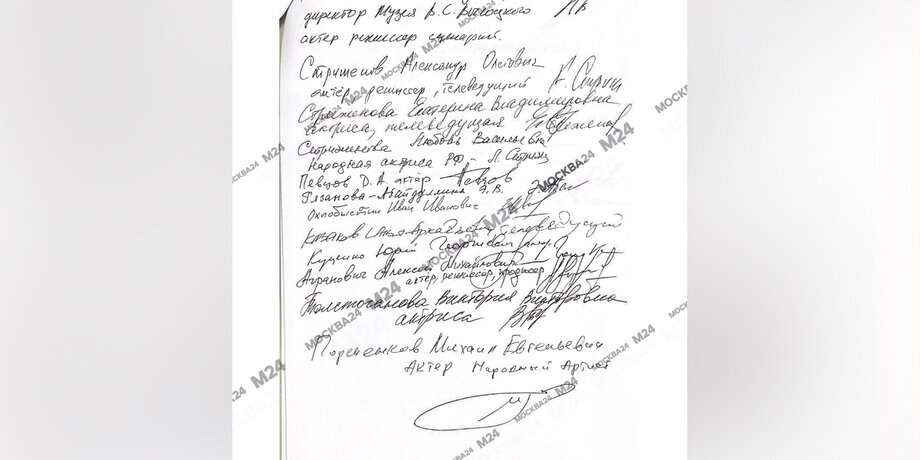 директор Музея В.С. Высоцкого
актер режиссер сценарий.
Стриженов Александр Олегович
актёр, режиссер, телеведущий
Стриженова Екатерина Владимировна
актриса, телеведущая
Стриженова Любовь Васильевна
Народная актриса РФ -
Певцов Д.А. актёр Певцов
Рязанова-Абайдуллина Э.В.
Охлобыстин Иван Иванович
Казаков Илья Аркадьевич телеведущий
Куценко Юрий Георгиевич
Агранович Алексей Михайлович
актер, режиссер, продюсер
Толстоганова Виктория Викторовна
актриса
Пореченков Михаил Евгеньевич
Актер Народный Артист
МОСКВА24 М24